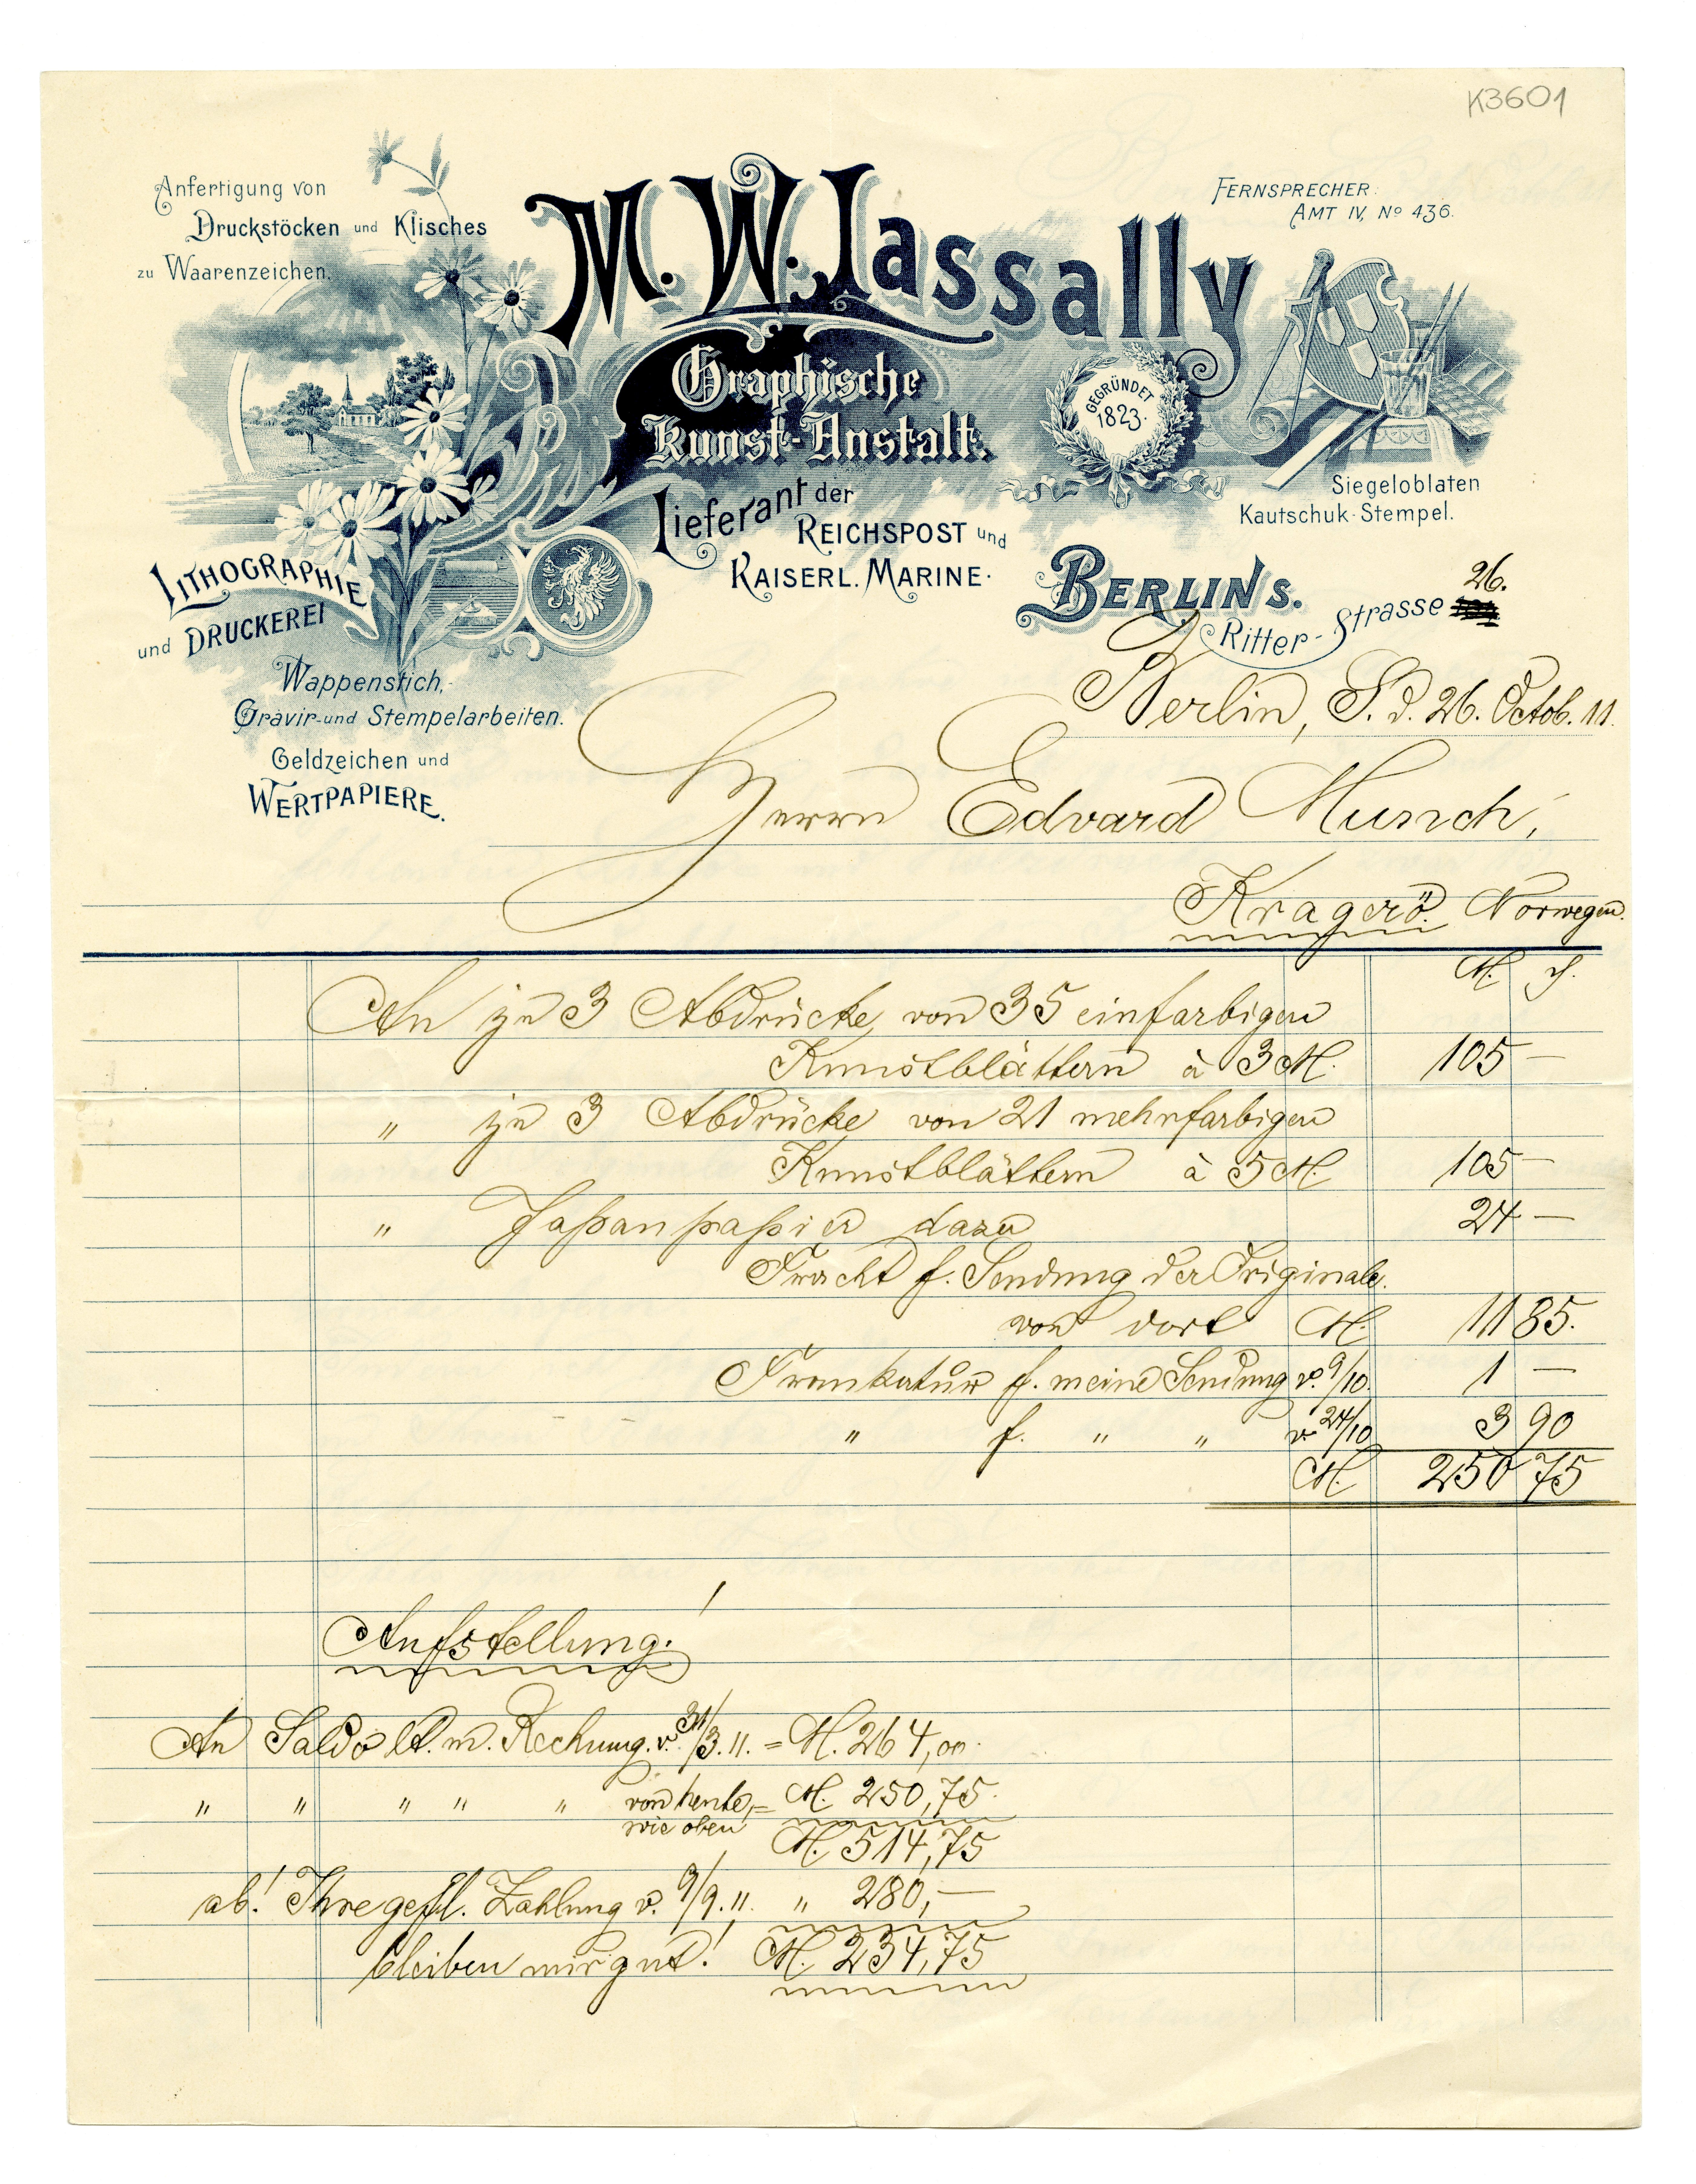 K3601
Anfertigung von
Druckstöcken und Klisches
zu Waarenzeichen.
M. W. Lassally
FERNSPRECHER:
AMT IV, No 436.
Graphische
Kunst-Anstalt.
GEGRÜNDET
1823.
Lieferant der
REICHSPOST und
KAISERL. MARINE.
Siegeloblaten
Kautschuk-Stempel.
LITHOGRAPHIE
und DRUCKEREI
BERLIN S.
Ritter-Strasse 26.
Wappenstich,
Gravir- und Stempelarbeiten.
Geldzeichen und
WERTPAPIERE.
Berlin, S. d. 26. Octob. 11.
Herrn Edvard Munch,
Kragerö. Norwegen.
M. ₰.
An je 3 Abdrücke von 35 einfarbigen
Kunstblättern à 3 M. 105 —
" je 3 Abdrücke von 21 mehrfarbigen
Kunstblättern à 5 M. 105 —
" Japanpapier dazu 24 —
Fracht f. Sendung der Originale
von dort M. 11 85.
Frankatur f. meine Sendung v. 9/10. 1 —
" f. " " v. 24/10 3 90
M. 250 75
Aufstellung!
An Saldo lt. m. Rechnung v. 31/3. 11. = M. 264,00.
" " " " " von heute = M. 250,75.
wie oben
M. 514,75
ab! Ihre gefl. Zahlung v. 9/9. 11. " 280,—
bleiben mir gut! M. 234,75